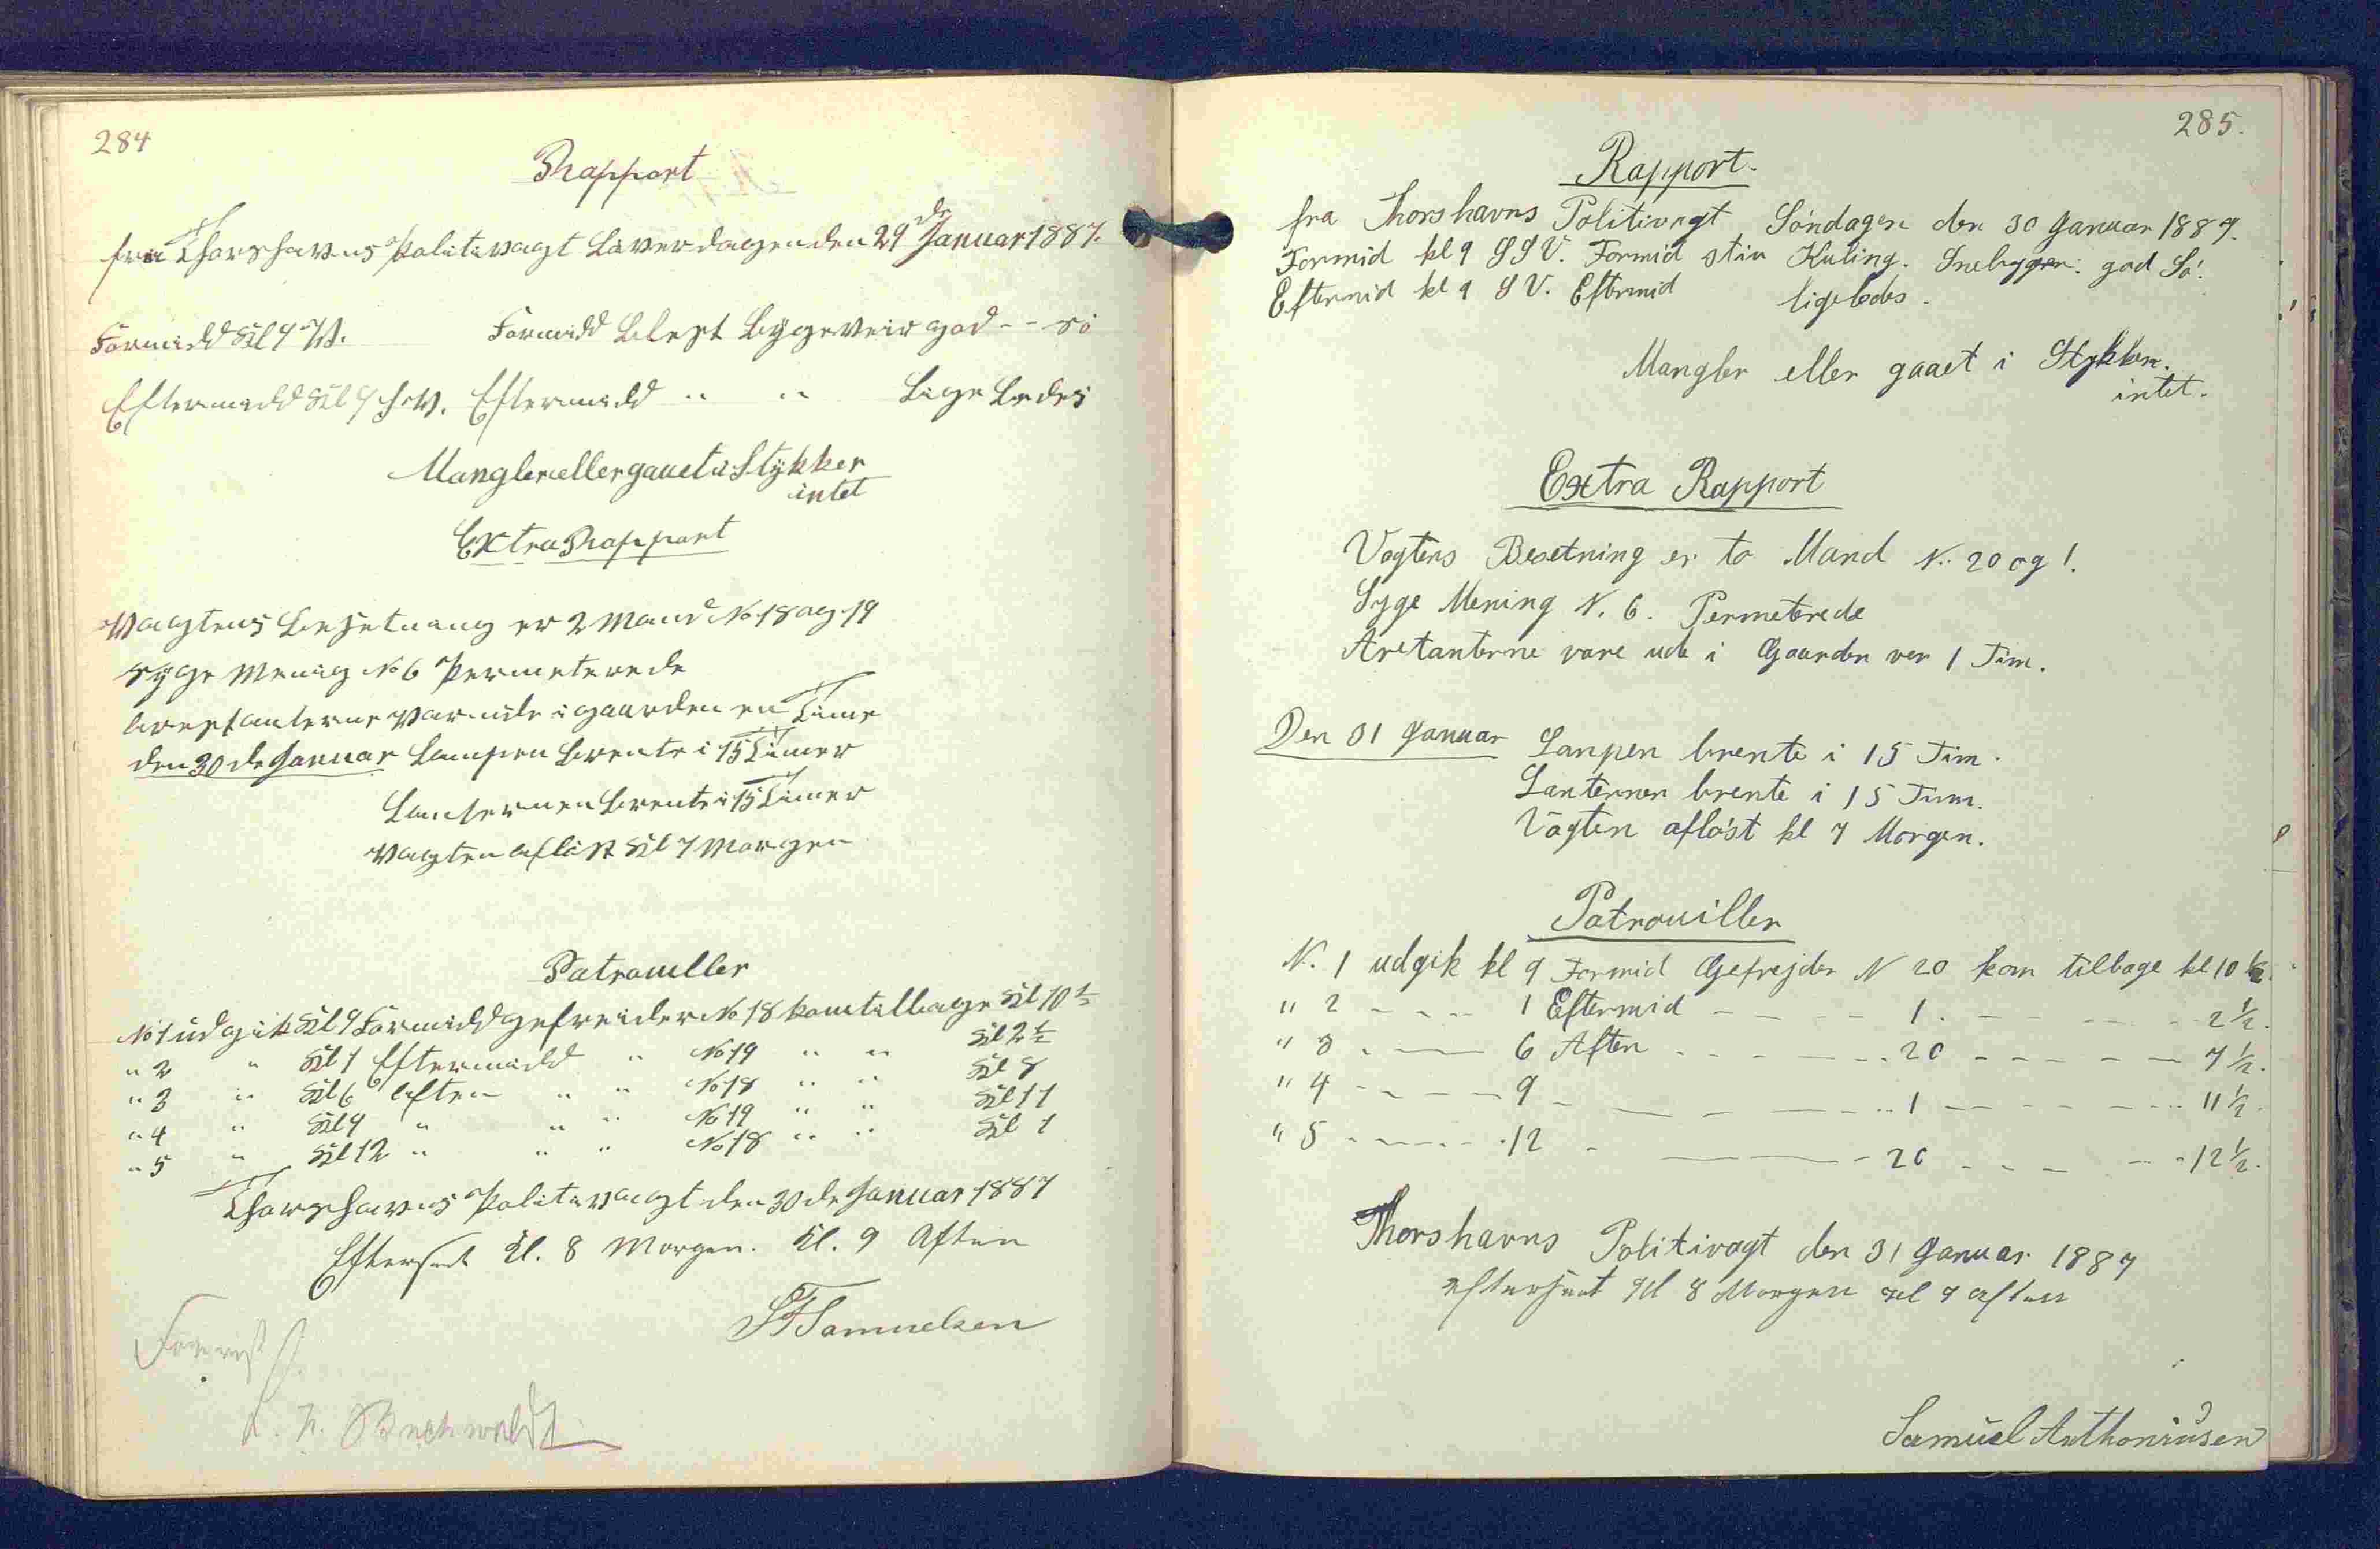 284
Rapport
fra Thorshavns Politivagt Løverdagen den 29de Januar 1887.
Formidd Kl 9 V. Formidd Blest Bygeveir god -- sö
Eftermidd Kl 9 S.V. Eftermidd " " Lige Ledes
Mangler eller gaaet i Stykker
intet
Extra Rapport
Vagtens Besetning er 2 Mand No 18 og 19
Syge Menig No 6 Permeterede
Arestanterne var ude i gaarden en Time
den 30 de Januar Lampen Brente i 15 Timer
Lanternen Brente i 15 Timer
Vagten Aflöst Kl 7 Morgen
Patrouller
No 1 udgik Kl 9 Formidd gefreider No 18 kom tilbage Kl 10 ½
" 2 " Kl 1 Eftermidd " No 19 " " Kl 2 ½
" 3 " Kl 6 Aften " " No 18 " " Kl 8
" 4 " Kl 9 " " " No 19 " " Kl 11
" 5 " Kl 12 " " " No 18 " " Kl 1
Thorshavns Politivagt den 30 de Januar 1887
Efterseet Kl. 8 Morgen. Kl. 9 Aften
Samuelsen
Buchwaldt
285.
Rapport.
fra Thorshavns Politivagt Söndagen den 30 Januar 1887.
Formid kl 9 SSV. Formid stiv Kuling. Snebyger. god Sö.
Eftermid kl 9 SV. Eftermid ligeledes.
Mangler eller gaaet i Stykker.
intet.
Extra Rapport
Vagtens Besetning er to Mand N. 20 og 1.
Syge Mening N. 6. Permeterede
Aretanterne vare ude i Gaarden ver 1 Tim.
Den 31 Januar Lanpen brente i 15 Tim.
Lanternen brente i 15 Tim.
Vagten aflöst kl 7 Morgen.
Patrouiller
N. 1 udgik kl 9 Formid Gefrejder N 20 kom tilbage kl 10 ½.
" 2 - - - - 1 Eftermid - - - - 1. - - - - - 2 ½.
" 3 - - - 6 Aften - - - - - 20 - - - - - 7 ½.
" 4 - - - - 9 - - - - - - 1 - - - - - 11 ½.
" 5 - - - - 12 - - - - 20 - - - - - 12 ½.
Thorshavns Politivagt den 31 Januar 1887
efterseet Kl 8 Morgen Kl 9 aften
Samuel Anthoniusen